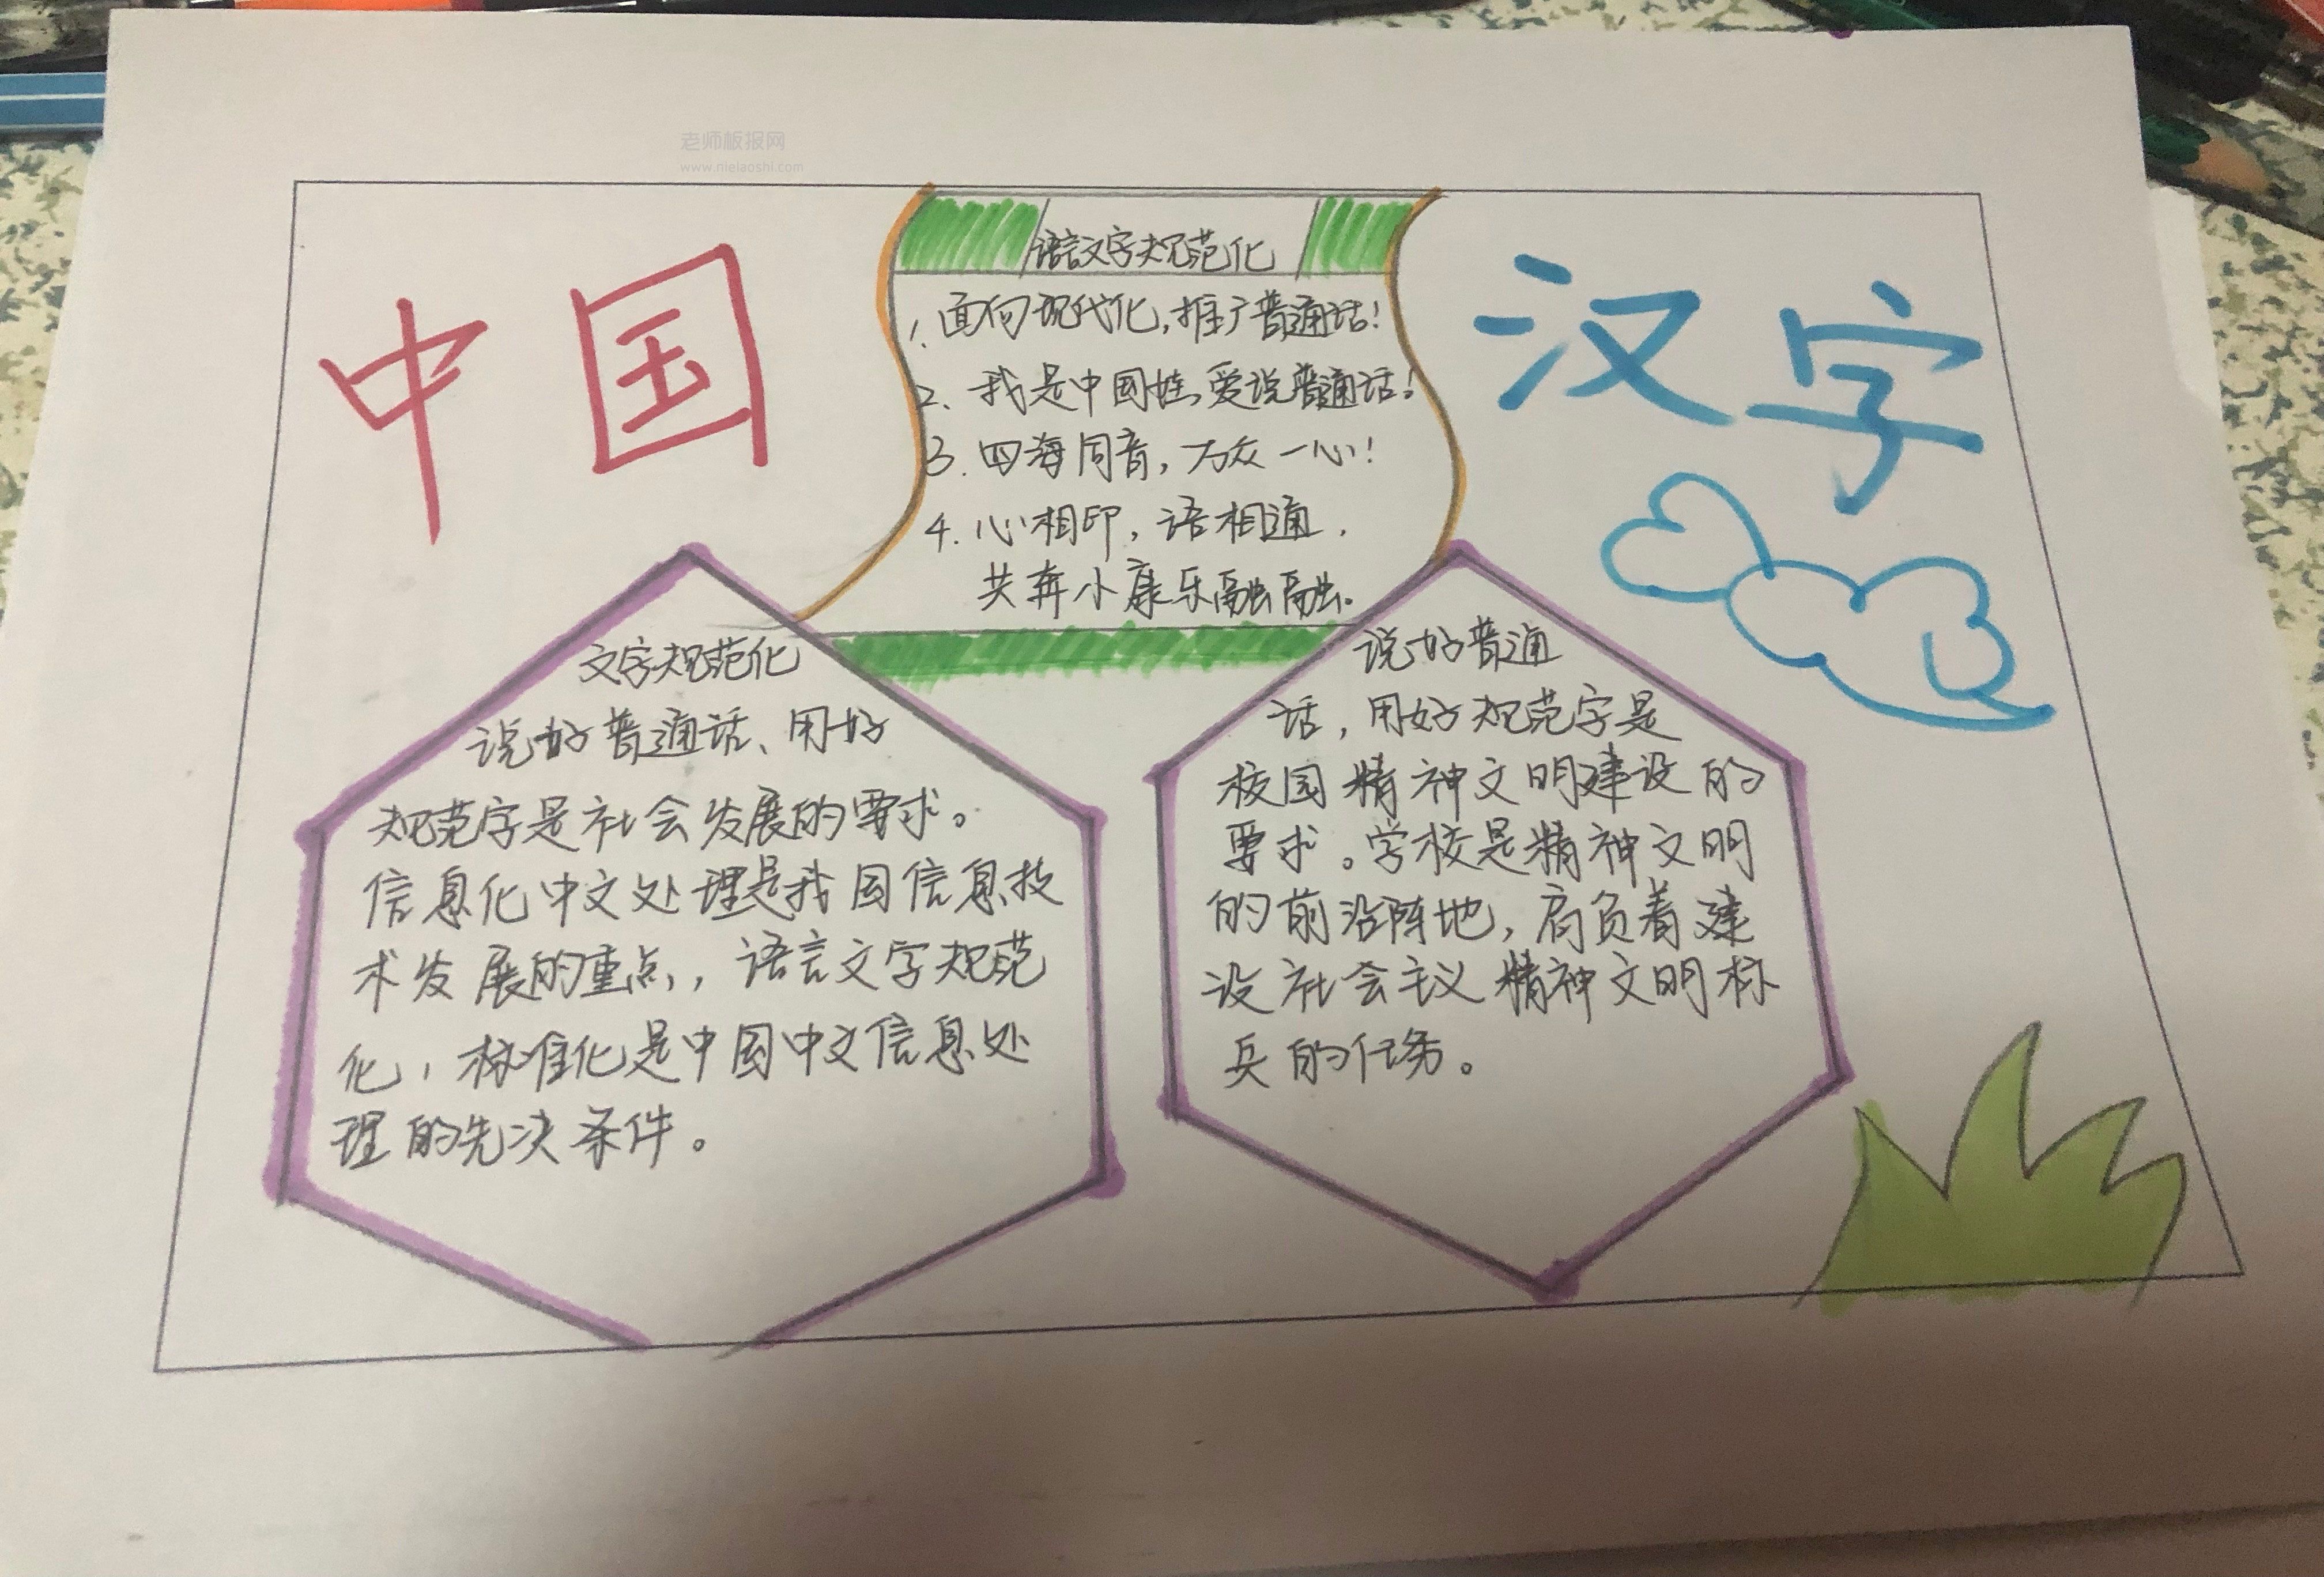 老师板报网
www.nielaoshi.com
中国
语言文字规范化
1. 面向现代化,推广普通话!
2、我是中国娃,爱说普通话!
3. 四海同音,万众一心!
4. 心相印,语相通,
共奔小康乐融融。
汉字
文字规范化
说好普通话、用好
规范字是社会发展的要求。
信息化中文处理是我国信息技
术发展的重点,,语言文字规范
化,标准化是中国中文信息处
理的先决条件。
说好普通
话,用好规范字是
校园精神文明建设的
要求。学校是精神文明
的前沿阵地,肩负着建
设社会主义精神文明标
兵的任务。